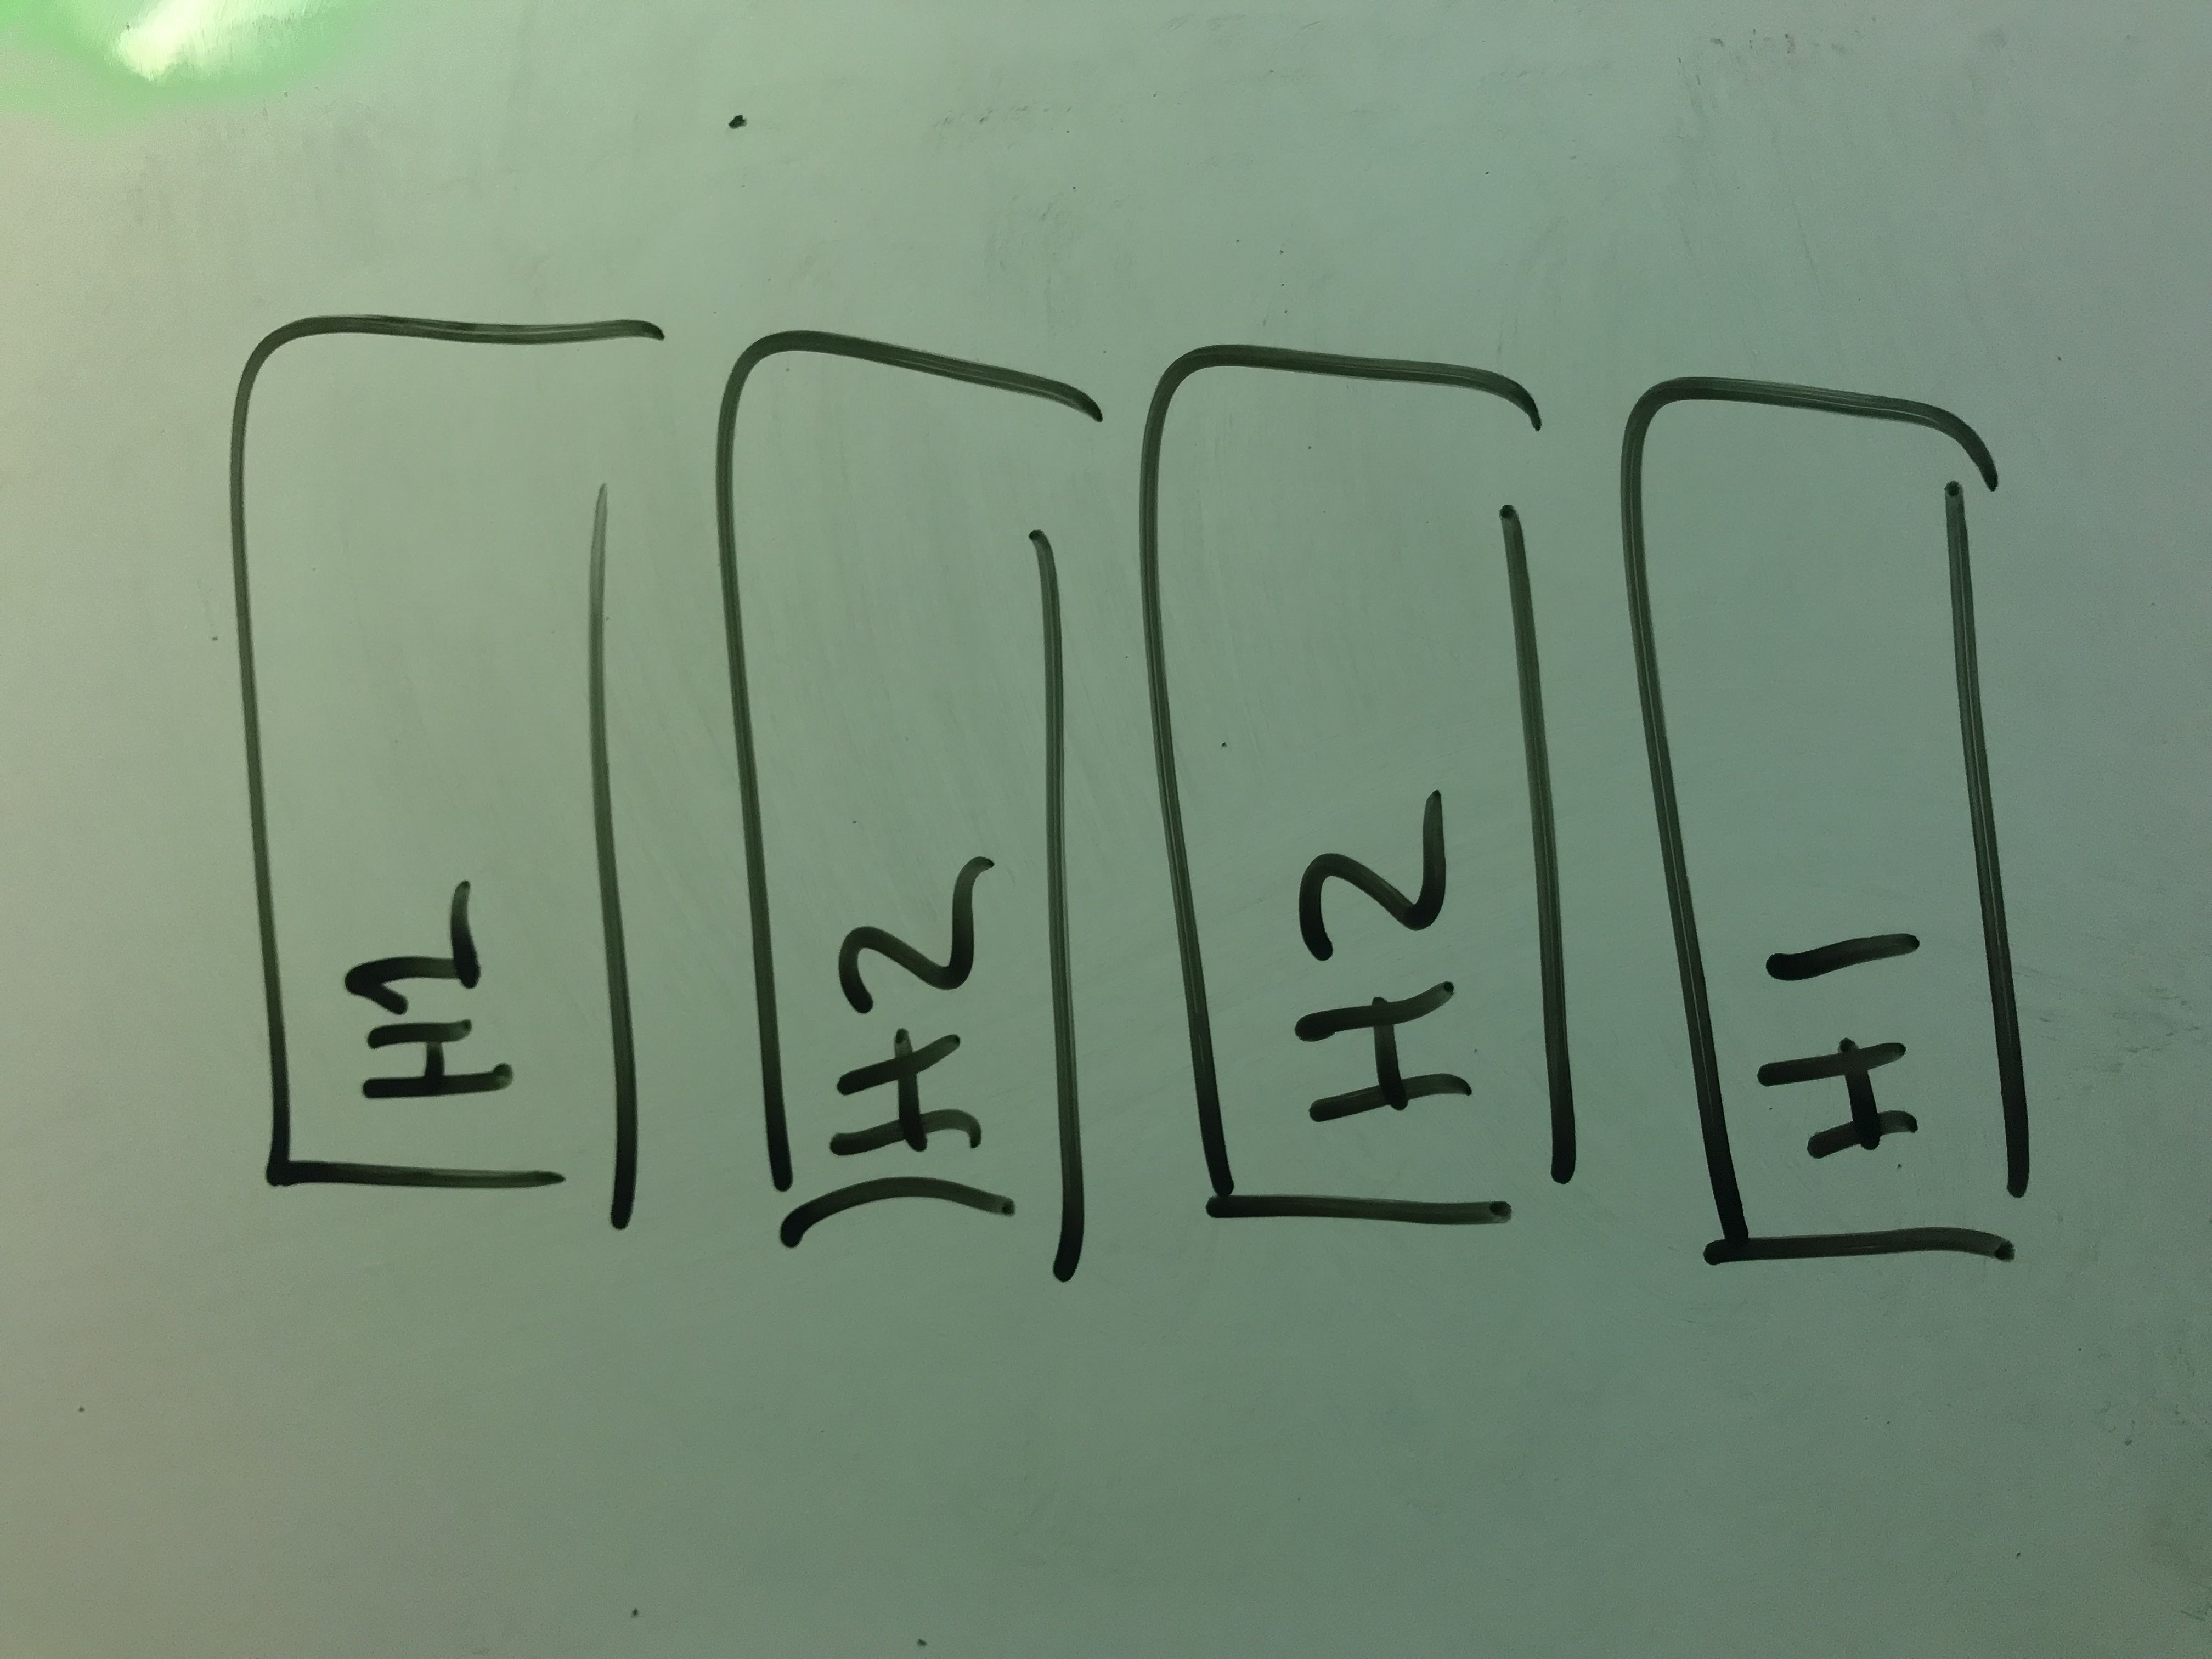 H1
H2
H2
H1